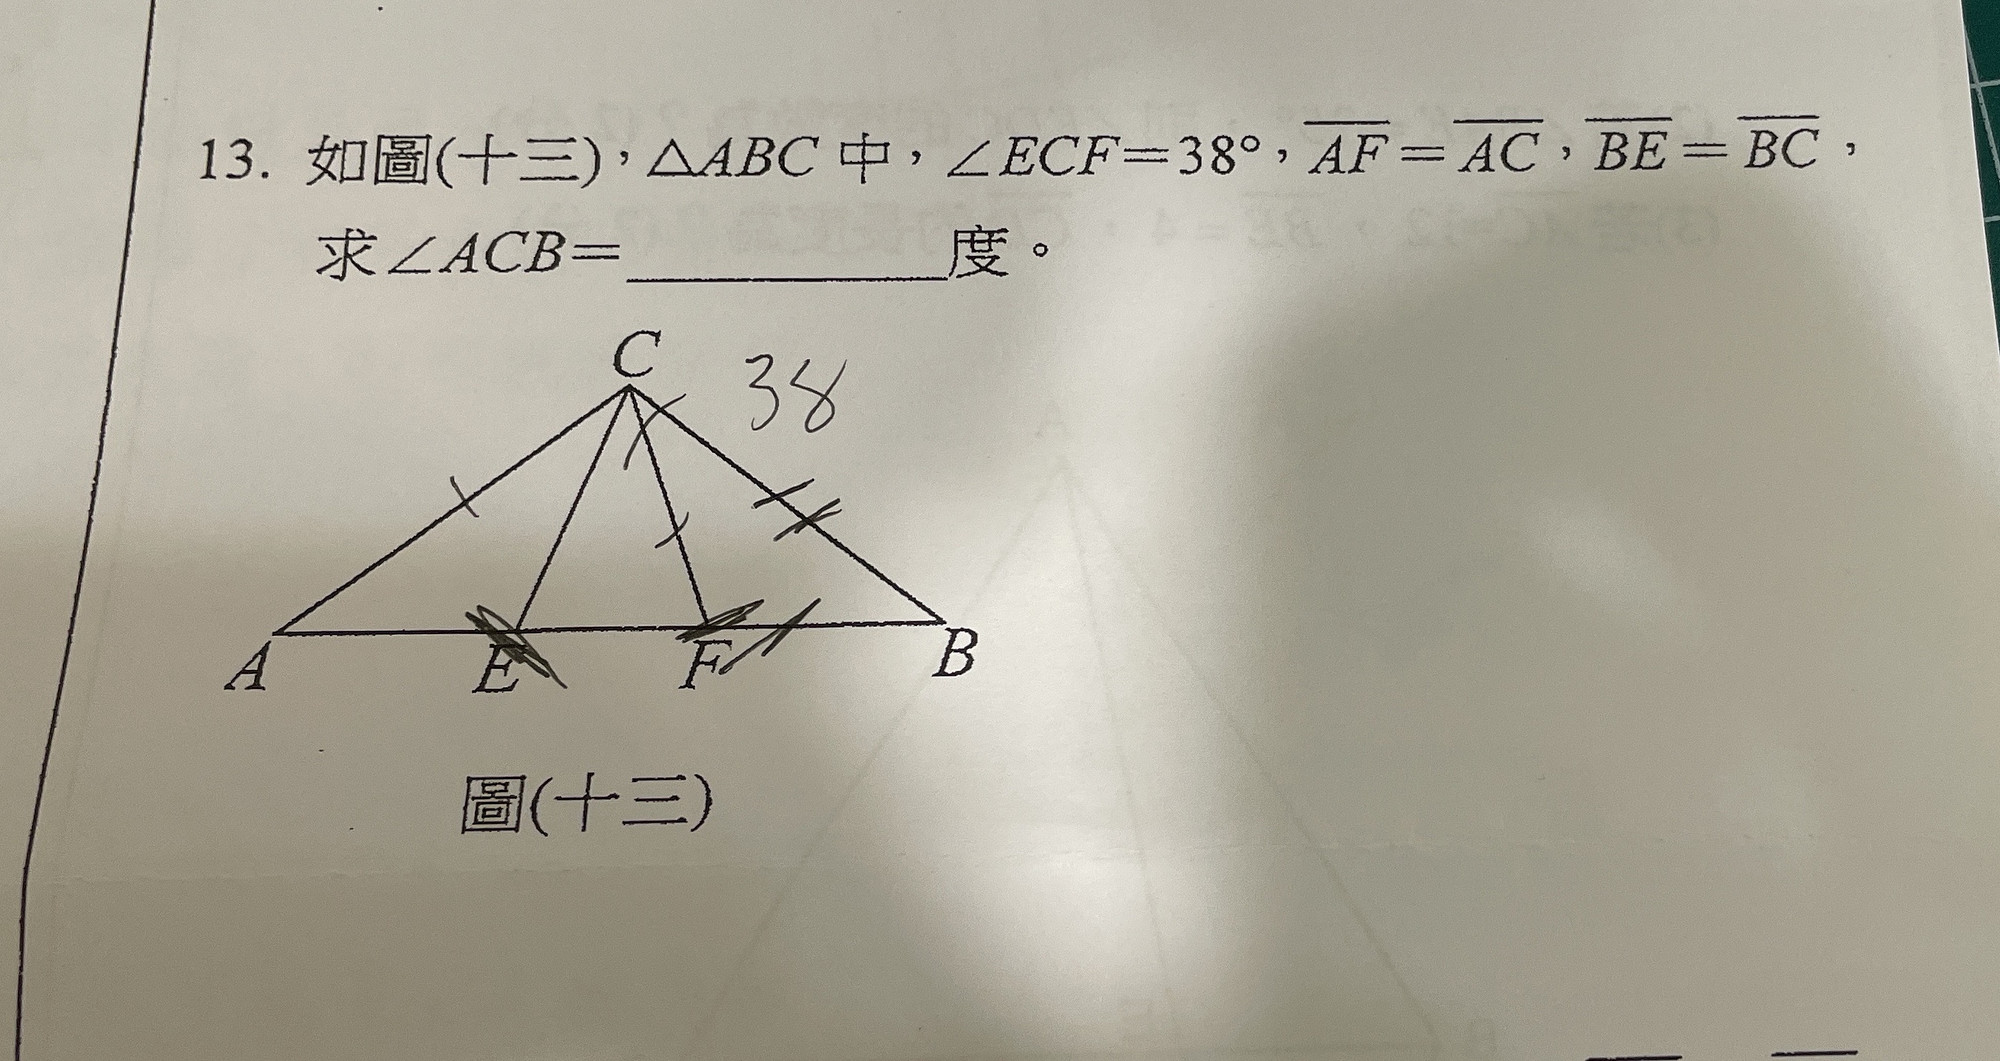 13. 如圖(十三)，△ABC 中，∠ECF=38°，AF=AC，BE=BC，
求∠ACB=__________度。
C
38
A
E
F
B
圖(十三)